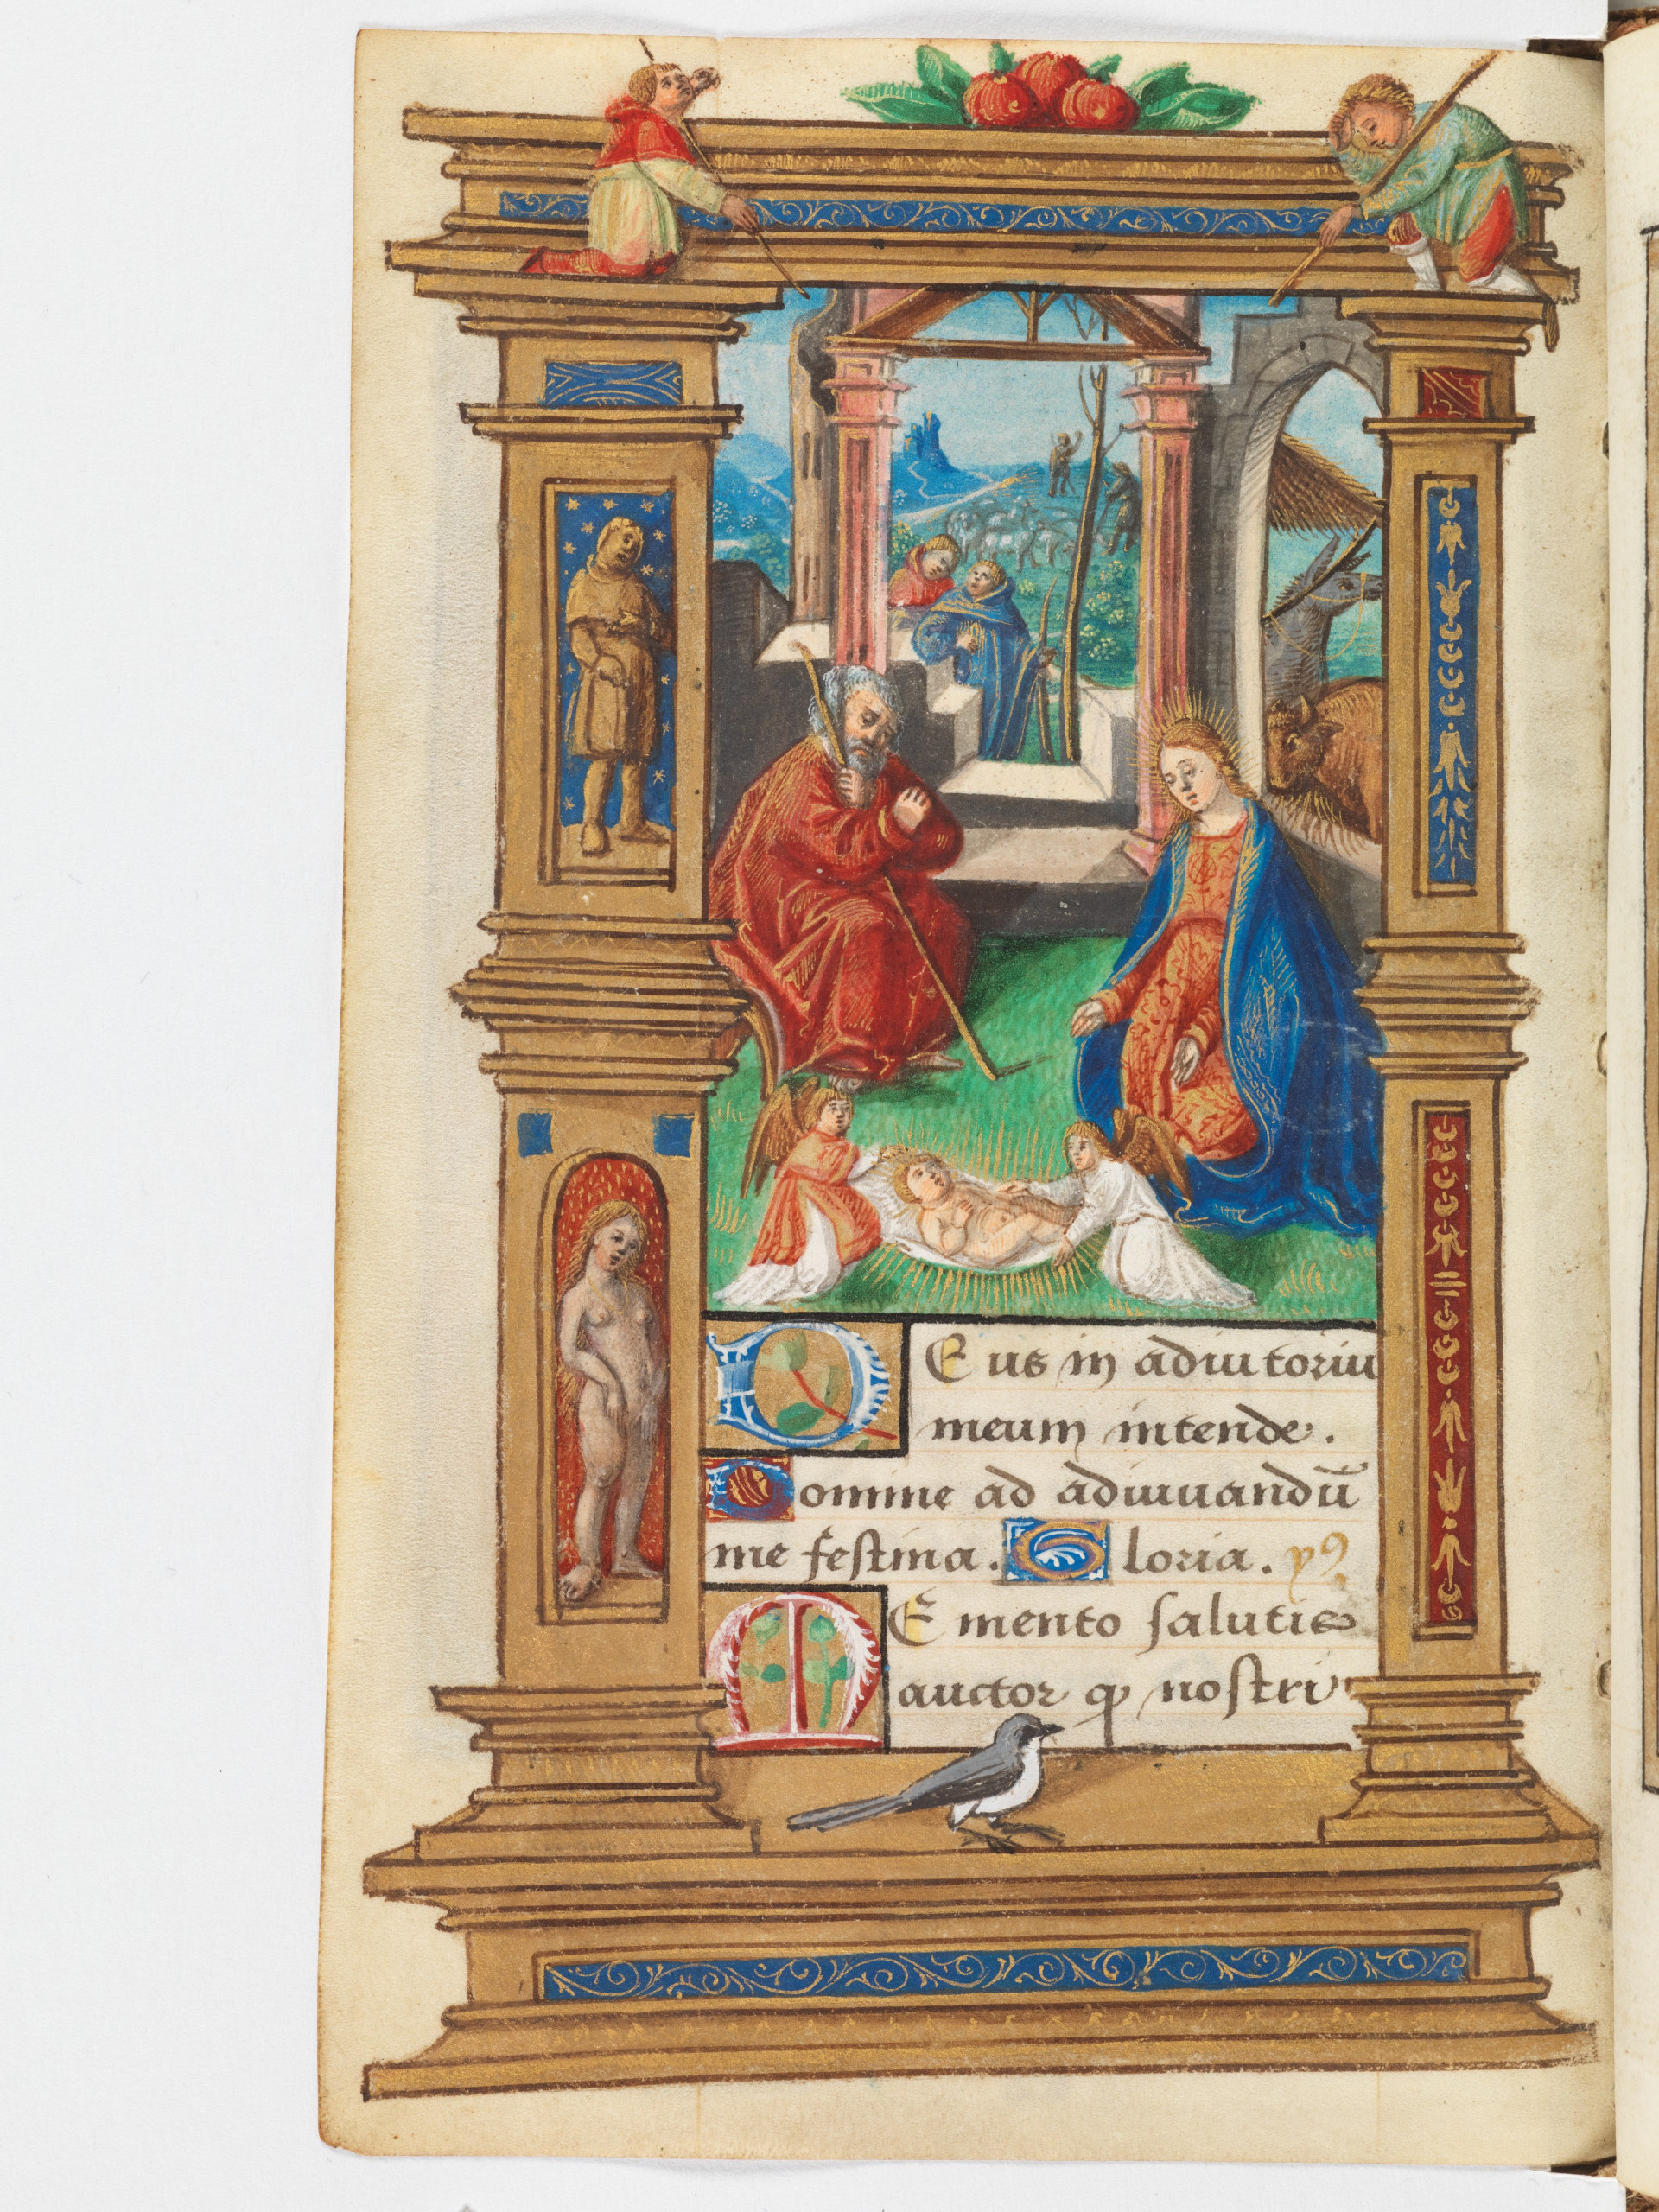 DEus in adiutoriu
meum intende.
Domine ad adiuuandū
me festina. Gloria. ps
MEmento salutis
auctor ꝙ nostri